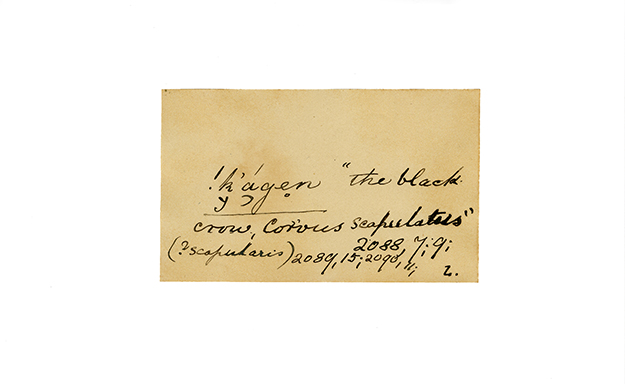 !k'ágen "the black
crow, Corvus scapulatus"
(?scapularis) 2088, 7; 9;
2089, 15; 2090, 11; L.